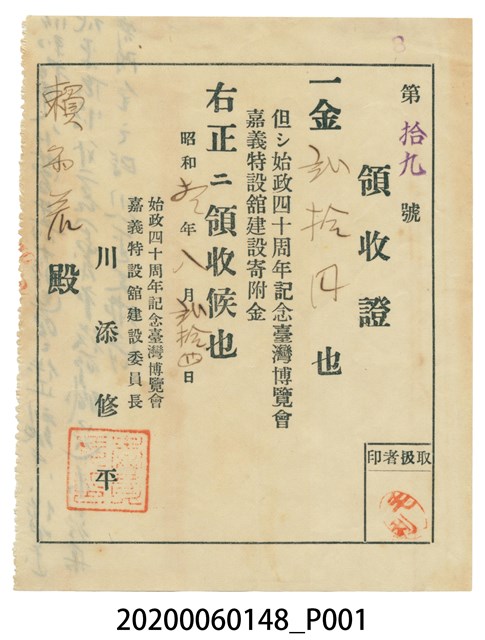 第 拾九 號
領收證
一金 貳拾円 也
但シ始政四十周年記念臺灣博覽會
嘉義特設舘建設寄附金
右正ニ領收候也
昭和 年 八月 貳拾四日
始政四十周年記念臺灣博覽會
嘉義特設舘建設委員長
川添修平
賴 殿
取扱者印
20200060148_P001